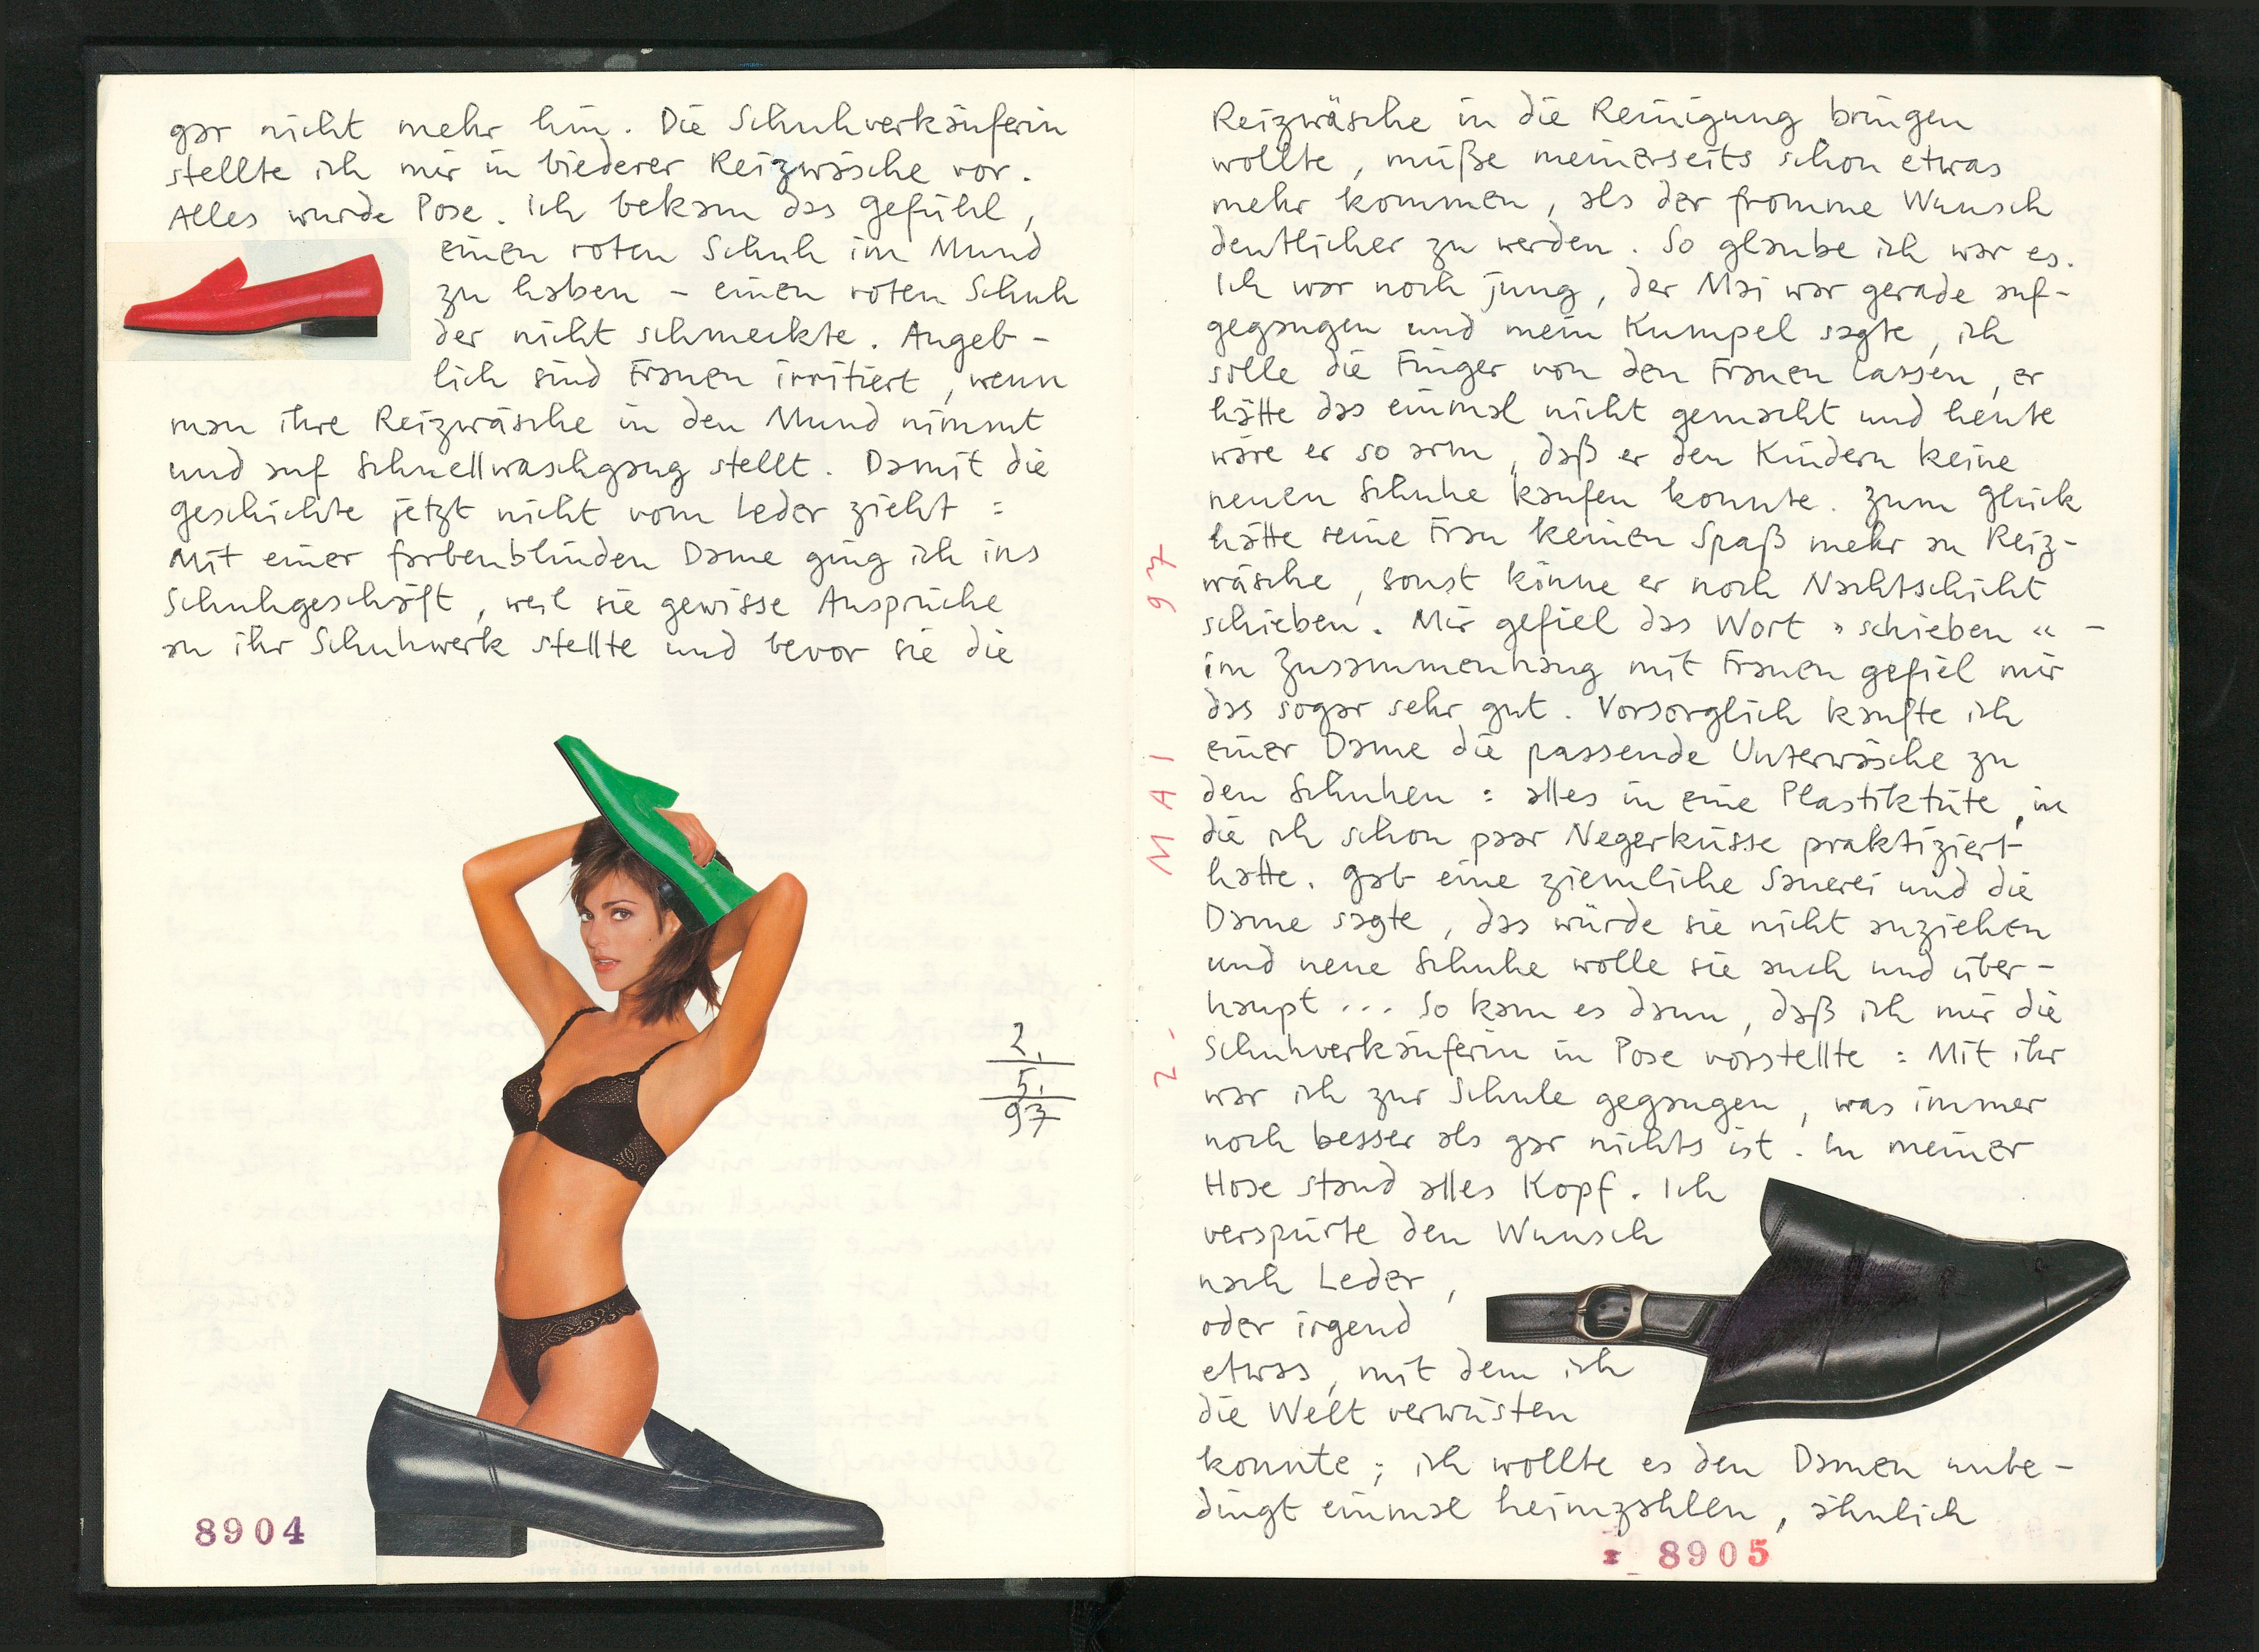 gar nicht mehr hin. Die Schuhverkäuferin
stellte ich mir in biederer Reizwäsche vor.
Alles wurde Pose. Ich bekam das Gefühl,
einen roten Schuh im Mund
zu haben – einen roten Schuh
der nicht schmeckte. Angeb-
lich sind Frauen irritiert, wenn
man ihre Reizwäsche in den Mund nimmt
und auf Schnellwaschgang stellt. Damit die
Geschichte jetzt nicht vom Leder zieht :
Mit einer farbenblinden Dame ging ich ins
Schuhgeschäft, weil sie gewisse Ansprüche
an ihr Schuhwerk stellte und bevor sie die
2.
5.
97
8904
2. MAI 97
Reizwäsche in die Reinigung bringen
wollte, müße meinerseits schon etwas
mehr kommen, als der fromme Wunsch
deutlicher zu werden. So glaube ich war es.
Ich war noch jung, der Mai war gerade auf-
gegangen und mein Kumpel sagte, ich
solle die Finger von den Frauen lassen, er
hätte das einmal nicht gemacht und heute
wäre er so arm, daß er den Kindern keine
neuen Schuhe kaufen konnte. Zum Glück
hätte seine Frau keinen Spaß mehr an Reiz-
wäsche, sonst könne er noch Nachtschicht
schieben. Mir gefiel das Wort »schieben« –
im Zusammenhang mit Frauen gefiel mir
das sogar sehr gut. Vorsorglich kaufte ich
einer Dame die passende Unterwäsche zu
den Schuhen : alles in eine Plastiktüte, in
die ich schon paar Negerküsse praktiziert
hatte. Gab eine ziemliche Sauerei und die
Dame sagte, das würde sie nicht anziehen
und neue Schuhe wolle sie auch und über-
haupt ... So kam es dann, daß ich mir die
Schuhverkäuferin in Pose vorstellte : Mit ihr
war ich zur Schule gegangen, was immer
noch besser als gar nichts ist. In meiner
Hose stand alles Kopf. Ich
verspürte den Wunsch
nach Leder,
oder irgend
etwas, mit dem ich
die Welt verwüsten
konnte ; ich wollte es den Damen unbe-
dingt einmal heimzahlen, ähnlich
8905